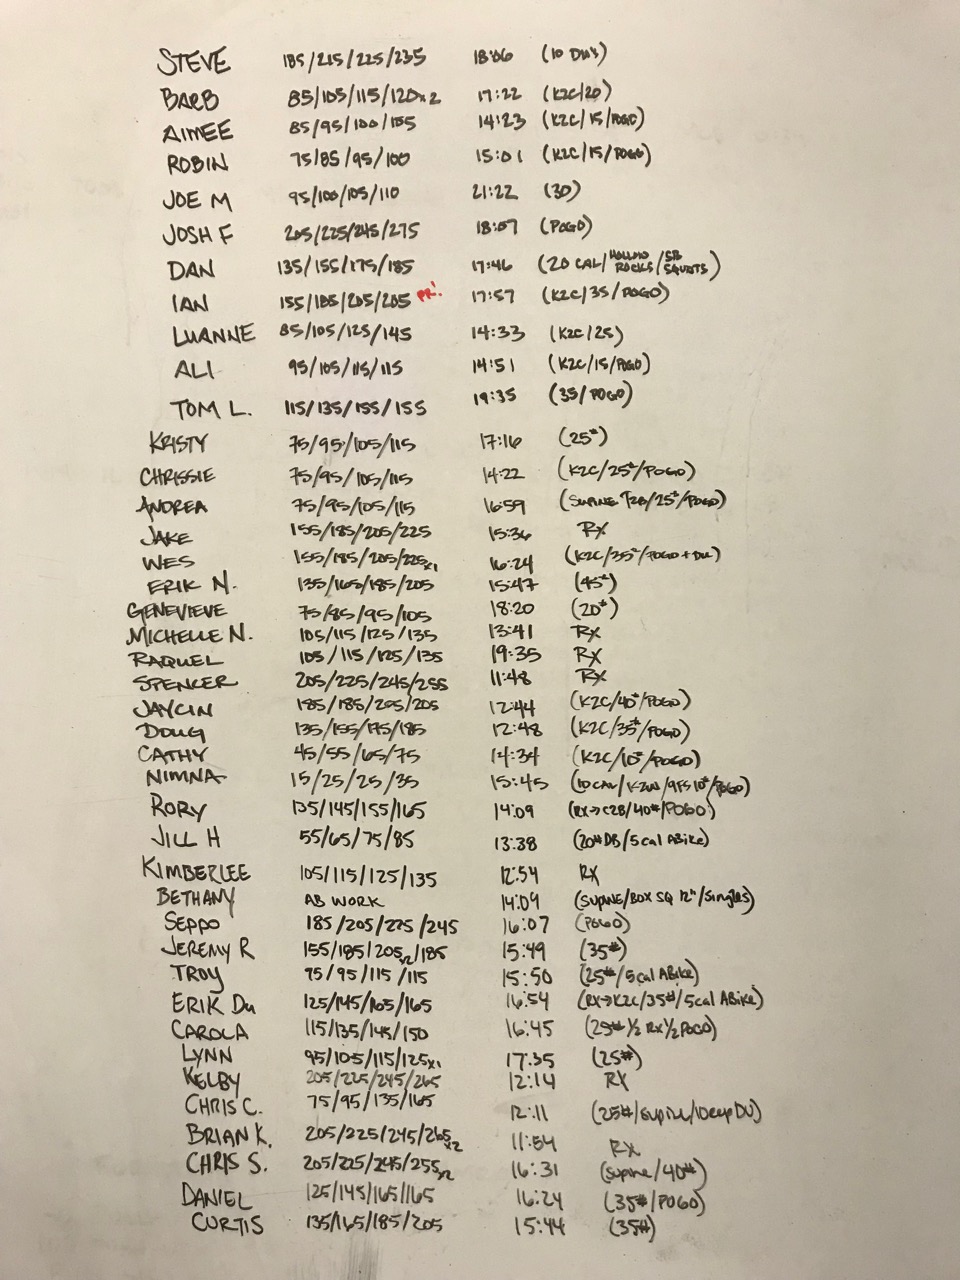 STEVE 185/215/225/235 18:06 (10 DU's)
BARB 85/105/115/120x2 17:22 (K2C/20)
AIMEE 85/95/100/105 14:23 (K2C/15/POGO)
ROBIN 75/85/95/100 15:01 (K2C/15/POGO)
JOE M 95/100/105/110 21:22 (30)
JOSH F 205/225/245/275 18:07 (POGO)
DAN 135/155/175/185 17:46 (20 CAL/HOLLOW ROCKS/SB SQUATS)
IAN 155/185/205/205 PR! 17:57 (K2C/35/POGO)
LUANNE 85/105/125/145 14:33 (K2C/25)
ALI 95/105/115/115 14:51 (K2C/15/POGO)
TOM L. 115/135/155/155 19:35 (35/POGO)
KRISTY 75/95/105/115 17:16 (25#)
CHRISSIE 75/95/105/115 14:22 (K2C/25#/POGO)
ANDREA 75/95/105/115 16:59 (SUPINE T2B/25#/POGO)
JAKE 155/185/205/225 15:36 RX
WES 155/185/205/225x1 16:24 (K2C/35#/POGO+DU)
ERIK N. 135/165/185/205 15:47 (45#)
GENEVIEVE 75/85/95/105 18:20 (20#)
MICHELLE N. 105/115/125/135 13:41 RX
RAQUEL 105/115/125/135 19:35 RX
SPENCER 205/225/245/255 11:48 RX
JAYCIN 185/185/205/205 12:44 (K2C/40#/POGO)
DOUG 135/155/175/185 12:48 (K2C/35#/POGO)
CATHY 45/55/65/75 14:34 (K2C/10#/POGO)
NIMNA 15/25/25/35 15:45 (10 CAL/K2W/9FS 10#/POGO)
RORY 135/145/155/165 14:09 (RX→C2B/40#/POGO)
JILL H 55/65/75/85 13:38 (20# DB/5 cal ABike)
KIMBERLEE 105/115/125/135 12:54 RX
BETHANY AB WORK 14:09 (SUPINE/BOX SQ 12"/Singles)
SEPPO 185/205/225/245 16:07 (POGO)
JEREMY R 155/185/205x2/185 15:49 (35#)
TROY 75/95/115/115 15:50 (25#/5 cal ABike)
ERIK Du 125/145/165/165 16:54 (RX→K2C/35#/5 cal ABike)
CAROLA 115/135/145/150 16:45 (25# 1/2 RX 1/2 POGO)
LYNN 95/105/115/125x1 17:35 (25#)
KELBY 205/225/245/265 12:14 RX
CHRIS C. 75/95/135/165 12:11 (25#/supine/10rep DU)
BRIAN K. 205/225/245/265x2 11:54 RX
CHRIS S. 205/225/245/255x2 16:31 (supine/40#)
DANIEL 125/145/165/165 16:24 (35#/POGO)
CURTIS 135/165/185/205 15:44 (35#)